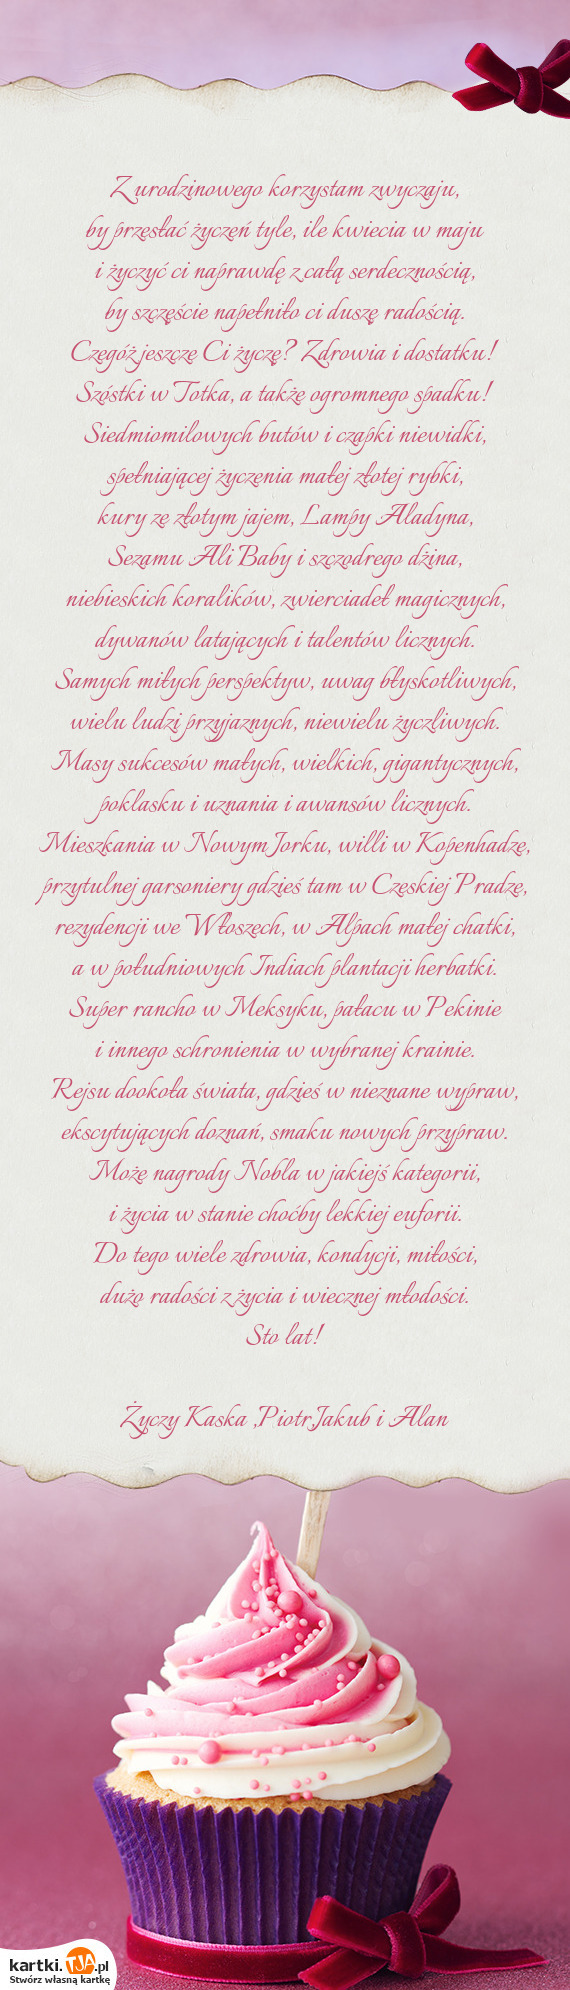 Z urodzinowego korzystam zwyczaju,
by przesłać życzeń tyle, ile kwiecia w maju
i życzyć ci naprawdę z całą serdecznością,
by szczęście napełniło ci duszę radością.
Czegóż jeszcze Ci życzę? Zdrowia i dostatku!
Szóstki w Totka, a także ogromnego spadku!
Siedmiomilowych butów i czapki niewidki,
spełniającej życzenia małej złotej rybki,
kury ze złotym jajem, Lampy Aladyna,
Sezamu Ali Baby i szczodrego dżina,
niebieskich koralików, zwierciadeł magicznych,
dywanów latających i talentów licznych.
Samych miłych perspektyw, uwag błyskotliwych,
wielu ludzi przyjaznych, niewielu życzliwych.
Masy sukcesów małych, wielkich, gigantycznych,
poklasku i uznania i awansów licznych.
Mieszkania w Nowym Jorku, willi w Kopenhadze,
przytulnej garsoniery gdzieś tam w Czeskiej Pradze,
rezydencji we Włoszech, w Alpach małej chatki,
a w południowych Indiach plantacji herbatki.
Super rancho w Meksyku, pałacu w Pekinie
i innego schronienia w wybranej krainie.
Rejsu dookoła świata, gdzieś w nieznane wypraw,
ekscytujących doznań, smaku nowych przypraw.
Może nagrody Nobla w jakiejś kategorii,
i życia w stanie choćby lekkiej euforii.
Do tego wiele zdrowia, kondycji, miłości,
dużo radości z życia i wiecznej młodości.
Sto lat!
Życzy Kaska ,Piotr,Jakub i Alan
kartki.TJA.pl
Stwórz własną kartkę